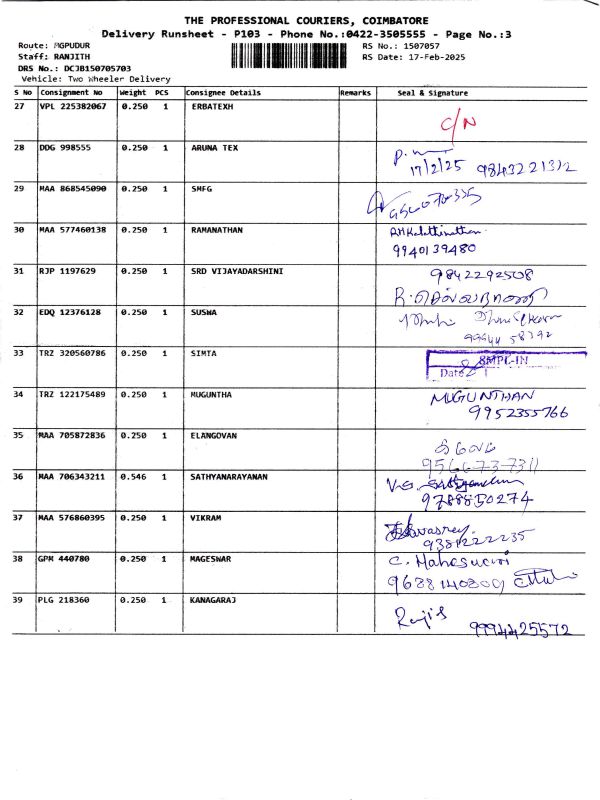 THE PROFESSIONAL COURIERS, COIMBATORE
Delivery Runsheet - P103 - Phone No.:0422-3505555 - Page No.:3
Route: MGPUDUR
RS No.: 1507057
Staff: RANJITH
RS Date: 17-Feb-2025
DRS No.: DCJB150705703
Vehicle: Two Wheeler Delivery
S No Consignment No Weight PCS Consignee Details Remarks Seal & Signature
27 VPL 225382067 0.250 1 ERBATEXH
C/N
28 DDG 998555 0.250 1 ARUNA TEX
17/2/25 9843221312
29 MAA 868545090 0.250 1 SMFG
30 MAA 577460138 0.250 1 RAMANATHAN
9940139480
31 RJP 1197629 0.250 1 SRD VIJAYADARSHINI
9842292508
32 EDQ 12376128 0.250 1 SUSWA
33 TRZ 320560786 0.250 1 SIMTA
SMPL-IN
Date
34 TRZ 122175489 0.250 1 MUGUNTHA
MUGUNTHAN
9952355766
35 MAA 705872836 0.250 1 ELANGOVAN
9566737311
36 MAA 706343211 0.546 1 SATHYANARAYANAN
9788850274
37 MAA 576860395 0.250 1 VIKRAM
9381222235
38 GPM 440780 0.250 1 MAGESWAR
C. Maheswari
39 PLG 218360 0.250 1 KANAGARAJ
9994425572